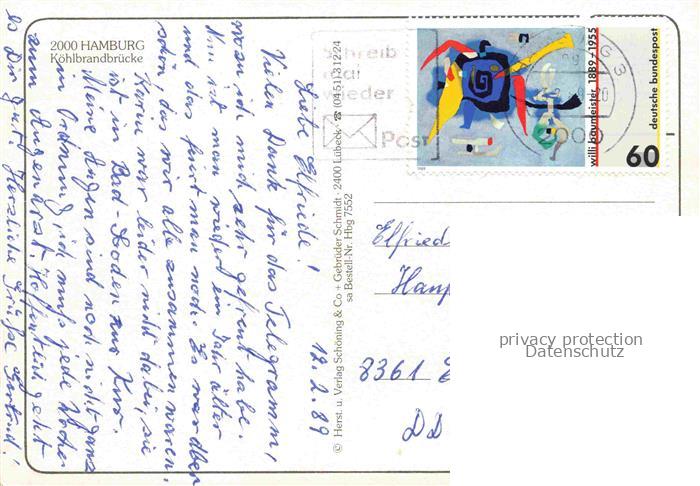 2000 HAMBURG
Köhlbrandbrücke
12.2.89
Liebe Elfriede!
Vielen Dank für das Telegramm,
worüber ich mich sehr gefreut habe.
Nun ist man wieder ein Jahr älter
und das feiert man noch. Es war aber
schön das wir alle zusammen waren.
Karin war leider nicht dabei, sie
ist in Bad-Soden zur Kur.
Meine Augen sind noch nicht ganz
in Ordnung, ich muß jede Woche
zum Augenarzt. Hoffentlich geht
es Dir gut. Herzliche Grüße Gertrud!
© Herst. u. Verlag Schöning & Co + Gebrüder Schmidt · 2400 Lübeck · ☎ (0451) 31224
sa Bestell-Nr. Hbg 7552
Schreib
mal
wieder
Post
willi baumeister 1889-1955
deutsche bundespost
60
Elfried
Haup
8361
DD
privacy protection
Datenschutz